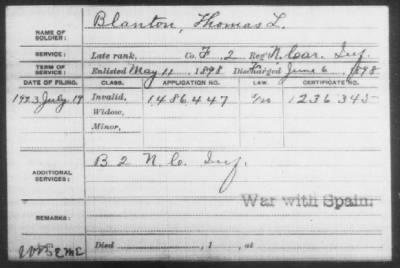 Blanton, Thomas L.
NAME OF SOLDIER:
SERVICE: Late rank, Co. F. 2 Reg't N. Car. Inf.
TERM OF SERVICE: Enlisted May 11, 1898 Discharged June 6, 1898
DATE OF FILING. CLASS. APPLICATION NO. LAW. CERTIFICATE NO.
1923 July 19 Invalid, 1486447 1236345
Widow,
Minor,
B 2 N. C. Inf.
ADDITIONAL SERVICES:
War with Spain.
REMARKS:
Died , 1 , at